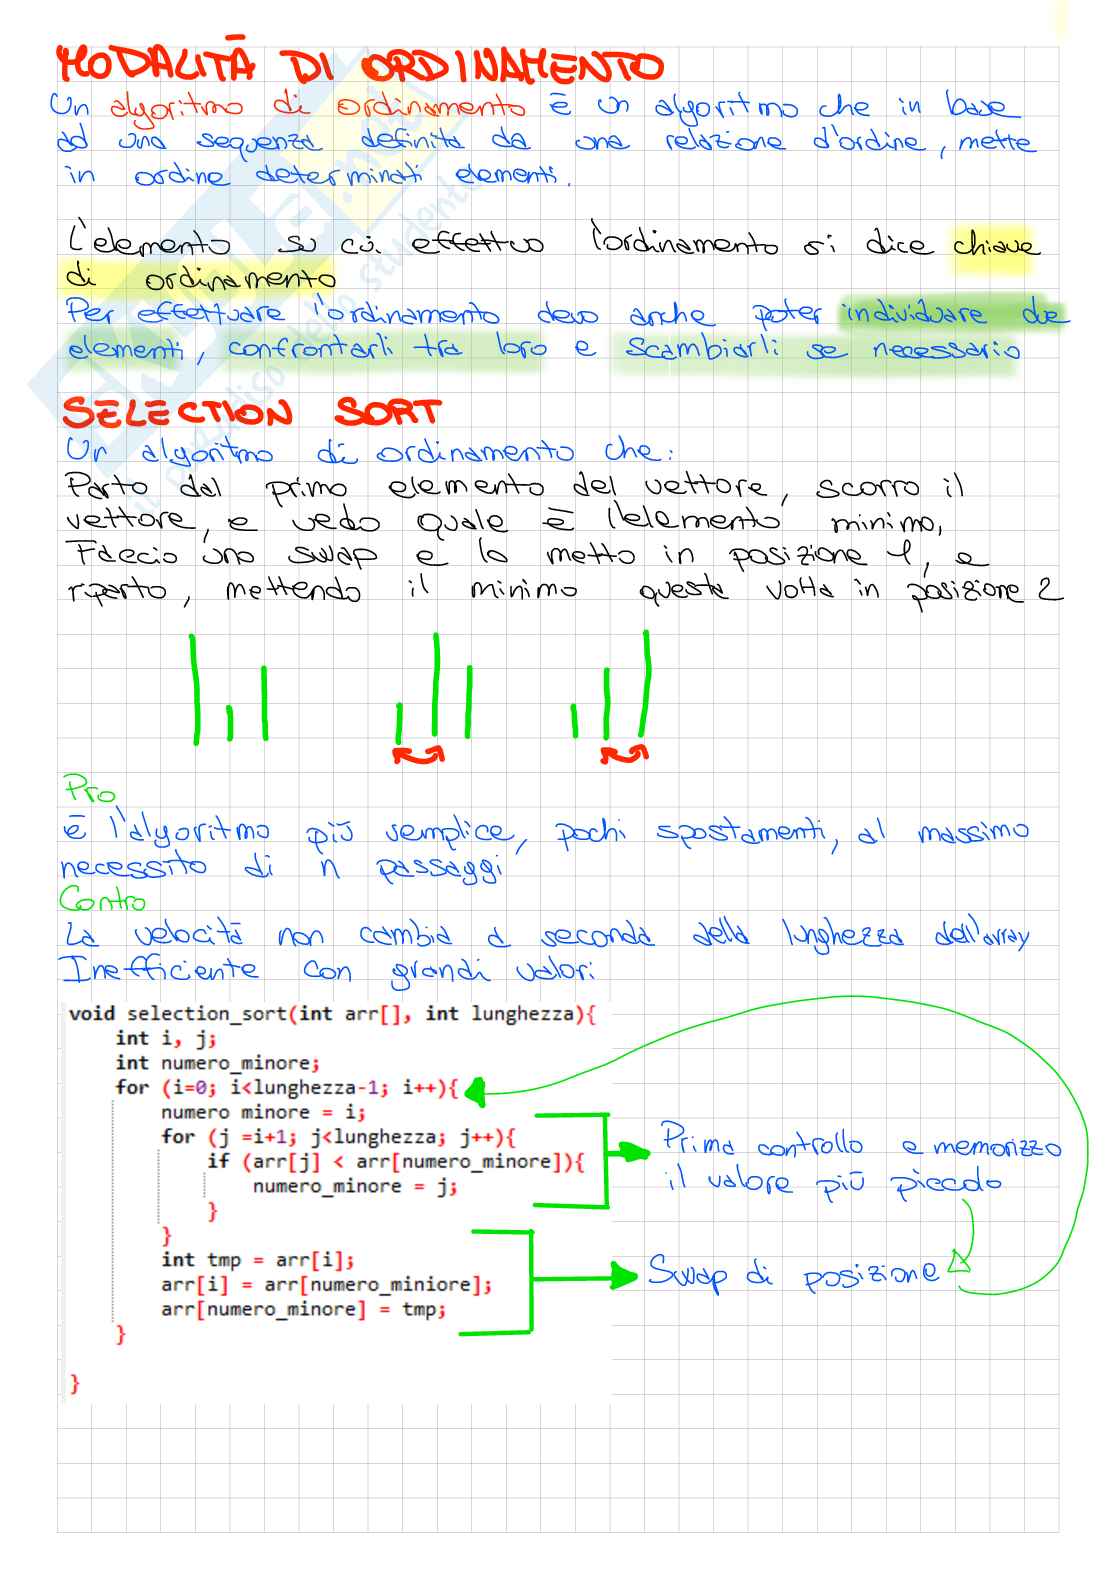 MODALITÀ DI ORDINAMENTO
Un algoritmo di ordinamento è un algoritmo che in base
ad una sequenza definita da una relazione d'ordine, mette
in ordine determinati elementi.
L'elemento su cui effettuo l'ordinamento si dice chiave
di ordinamento
Per effettuare l'ordinamento devo anche poter individuare due
elementi, confrontarli tra loro e scambiarli se necessario
SELECTION SORT
Un algoritmo di ordinamento che:
Parto dal primo elemento del vettore, scorro il
vettore, e vedo quale è l'elemento minimo,
Faccio uno swap e lo metto in posizione 1, e
riparto, mettendo il minimo questa volta in posizione 2
Pro
è l'algoritmo più semplice, pochi spostamenti, al massimo
necessito di n passaggi
Contro
La velocità non cambia a seconda della lunghezza dell'array
Inefficiente con grandi valori
void selection_sort(int arr[], int lunghezza){
int i, j;
int numero_minore;
for (i=0; i<lunghezza-1; i++){
numero minore = i;
for (j =i+1; j<lunghezza; j++){
if (arr[j] < arr[numero_minore]){
numero_minore = j;
}
}
int tmp = arr[i];
arr[i] = arr[numero_miniore];
arr[numero_minore] = tmp;
}
}
Prima controllo e memorizzo
il valore più piccolo
Swap di posizione